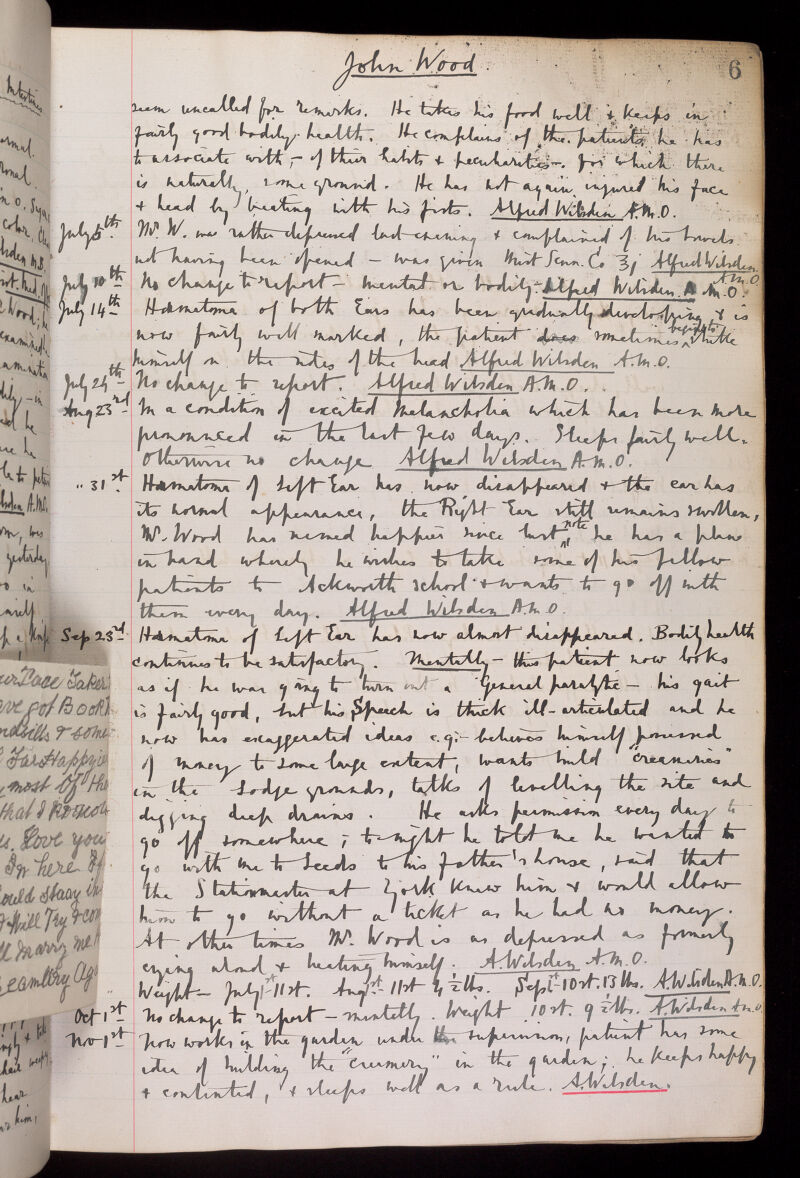 John Wood
6
seem uncalled for remarks. He takes his food well & keeps in
fairly good bodily health. He complains of the patients he has
to associate with, - of their habits & peculiarities - for which there
is naturally, some ground. He has not again injured his face
& head by beating with his fists. Alfred Wilsden A.M.O.
July 5th. Mr W. was rather depressed last evening & complained of his bowels
not having been opened - was given Mist Senn. Co ℥j Alfred Wilsden
A.M.O.
July 10th No change to report - mental or bodily - Alfred Wilsden A.M.O.
July 14th Hæmatoma of both Ears has been gradually developing, & is
now fairly well marked, the patient does sometimes begins to strike
himself on the sides of the head Alfred Wilsden A.M.O.
July 24th No change to report. Alfred Wilsden A.M.O.
Aug 23rd In a condition of excited melancholia which has been more
pronounced in the last few days. Sleeps fairly well.
Otherwise no change Alfred Wilsden A.M.O.
" 31st. Hæmatoma of Left Ear has now disappeared & the ear has
its normal appearance, the Right Ear still remains swollen,
Mr. Wood has seemed happier since last note he has a plan
in hand whereby he wishes to take some of his fellow
patients to Ackworth School & wants to go off with
them every day. Alfred Wilsden A.M.O.
Sep 23rd Hæmatoma of Left Ear has now almost disappeared. Bodily health
continues to be satisfactory. Mentally - this patient now looks
as if he was going to turn out a General paralytic - his gait
is fairly good, but his Speech is thick ill-articulated and he
now has exaggerated ideas e.g:- believes himself possessed
of money to some large extent, wants build "creameries"
in the Lodge grounds, talks of levelling the site and
digging deep drains. He asks permission every day to
go off somewhere; to-night he told me he wanted to
go with me to Leeds to his father's house, said that
the Stationmaster at York knew him & would allow
him to go without a ticket as he had no money.
At other times Mr. Wood is as depressed as formerly
crying aloud & beating himself. A.Wilsden A.M.O.
Weight - July 1st 11st. Augst 1st 11st 4½ lbs. Sept 1st 10st.13 lbs. A.Wilsden A.M.O.
Oct 1st No change to report - mentally. Weight 10st. 9½ lbs. A.Wilsden A.M.O.
Nov 1st Now works in the garden under the supervision, patient has some
idea of building the "creamery" in the garden; he keeps happy
& contented, & sleeps well as a rule. A.Wilsden.